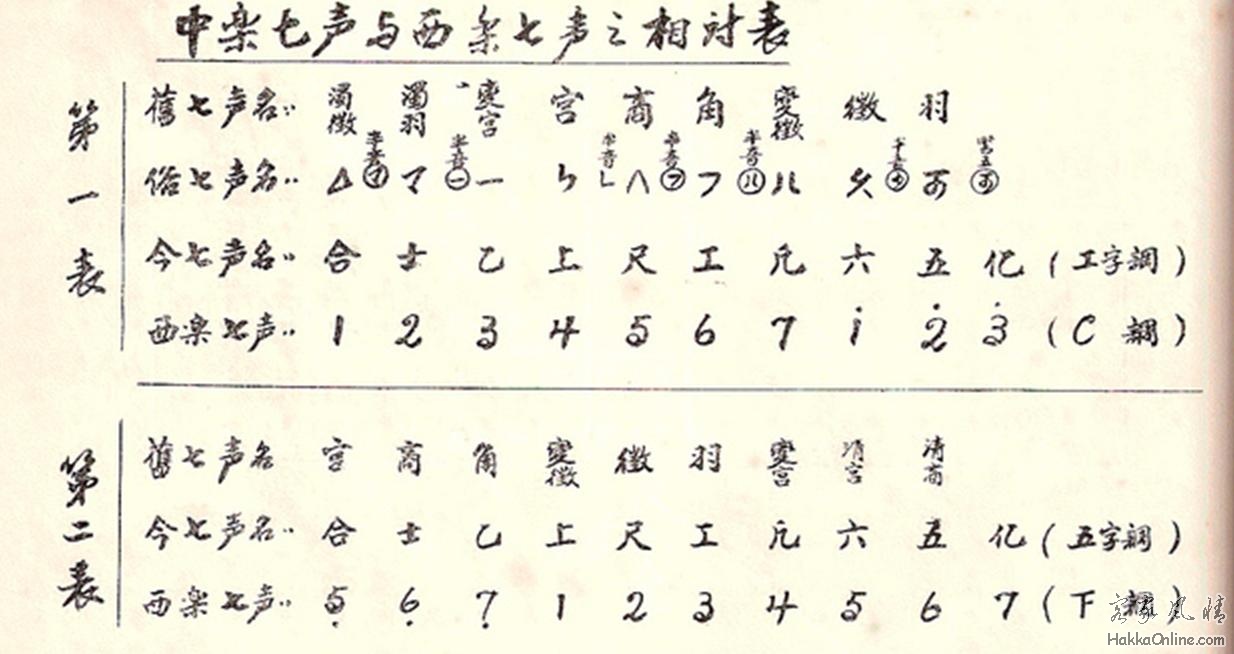 中楽七声与西楽七声之相对表
第一表
舊七声名‥ 濁徵 濁羽 變宮 宮 商 角 變徵 徵 羽
半音 半音 半音 半音 半音
俗七声名‥ マ 一 ㄣ フ 久
今七声名‥ 合 士 乙 上 尺 工 凡 六 五 伬 (工字調)
西楽七声‥ 1 2 3 4 5 6 7 1̇ 2̇ 3̇ (C 調)
第二表
舊七声名 宮 商 角 變徵 徵 羽 變宮 清宮 清商
今七声名‥ 合 士 乙 上 尺 工 凡 六 五 (五字調)
西楽七声‥ 5̣ 6̣ 7̣ 1 2 3 4 5 6 7 (下 調)
客家風情
HakkaOnline.com